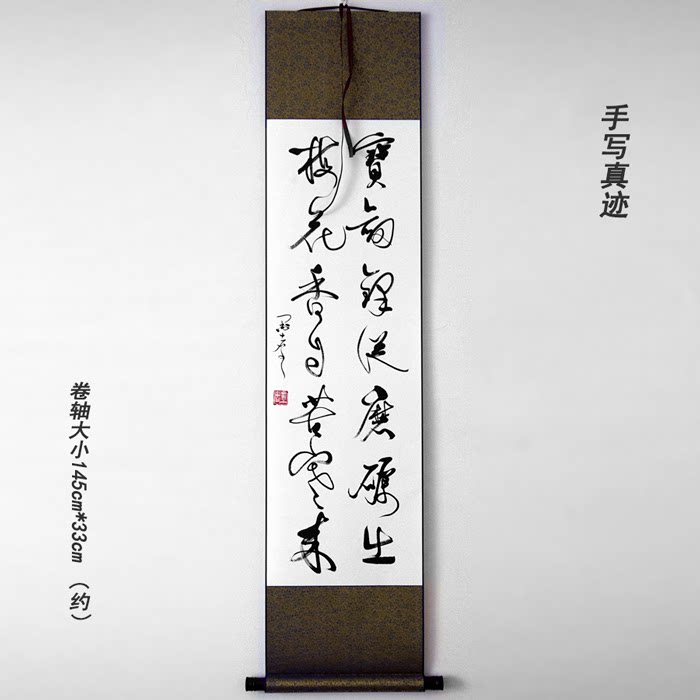 寶劍鋒從磨礪出
梅花香自苦寒來
手写真迹
卷轴大小145cm*33cm（约）